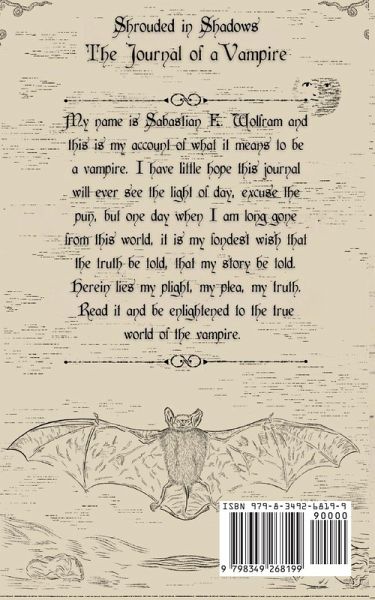 Shrouded in Shadows
The Journal of a Vampire
My name is Sabastian E. Wolfram and
this is my account of what it means to be
a vampire. I have little hope this journal
will ever see the light of day, excuse the
pun, but one day when I am long gone
from this world, it is my fondest wish that
the truth be told, that my story be told.
Herein lies my plight, my plea, my truth.
Read it and be enlightened to the true
world of the vampire.
ISBN 979-8-3492-6819-9
90000
9 798349 268199